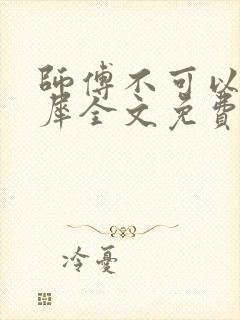 師傅不可以
犀全文免費
冷憂